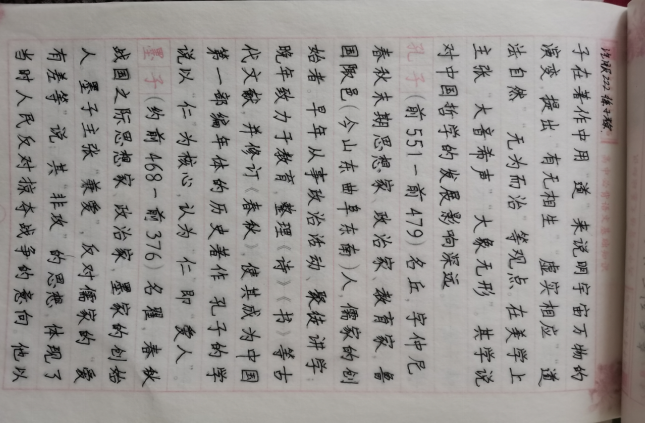 子在著作中用“道”来说明宇宙万物的
演变,提出“有无相生”“虚实相应”“道
法自然”“无为而治”等观点,在美学上
主张“大音希声”“大象无形”,其学说
对中国哲学的发展影响深远
孔子(前551-前479)名丘,字仲尼
春秋末期思想家、政治家、教育家,鲁
国陬邑(今山东曲阜东南)人,儒家的创
始者,早年从事政治活动,聚徒讲学,
晚年致力于教育,整理《诗》《书》等古
代文献,并修订《春秋》,使其成为中国
第一部编年体的历史著作,孔子的学
说以“仁”为核心,认为“仁”即“爱人”
墨子(约前468-前376)名翟,春秋
战国之际思想家、政治家,墨家的创始
人,墨子主张“兼爱”,反对儒家的“爱
有差等”说,其“非攻”的思想,体现了
当时人民反对掠夺战争的意向,他以